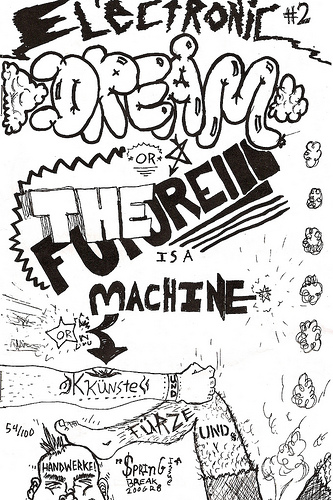 ELECTRONIC #2
DREAM
OR
THE
FUTURE!!!
IS A
MACHINE
OR
KÜNSTE
UND
FÜRZE
UND
54/100
HANDWERKE!
"SPRING
BREAK
2006 RB